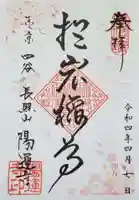 奉拝
令和四年四月七日
於岩稲荷
東京 四谷 長照山 陽運寺